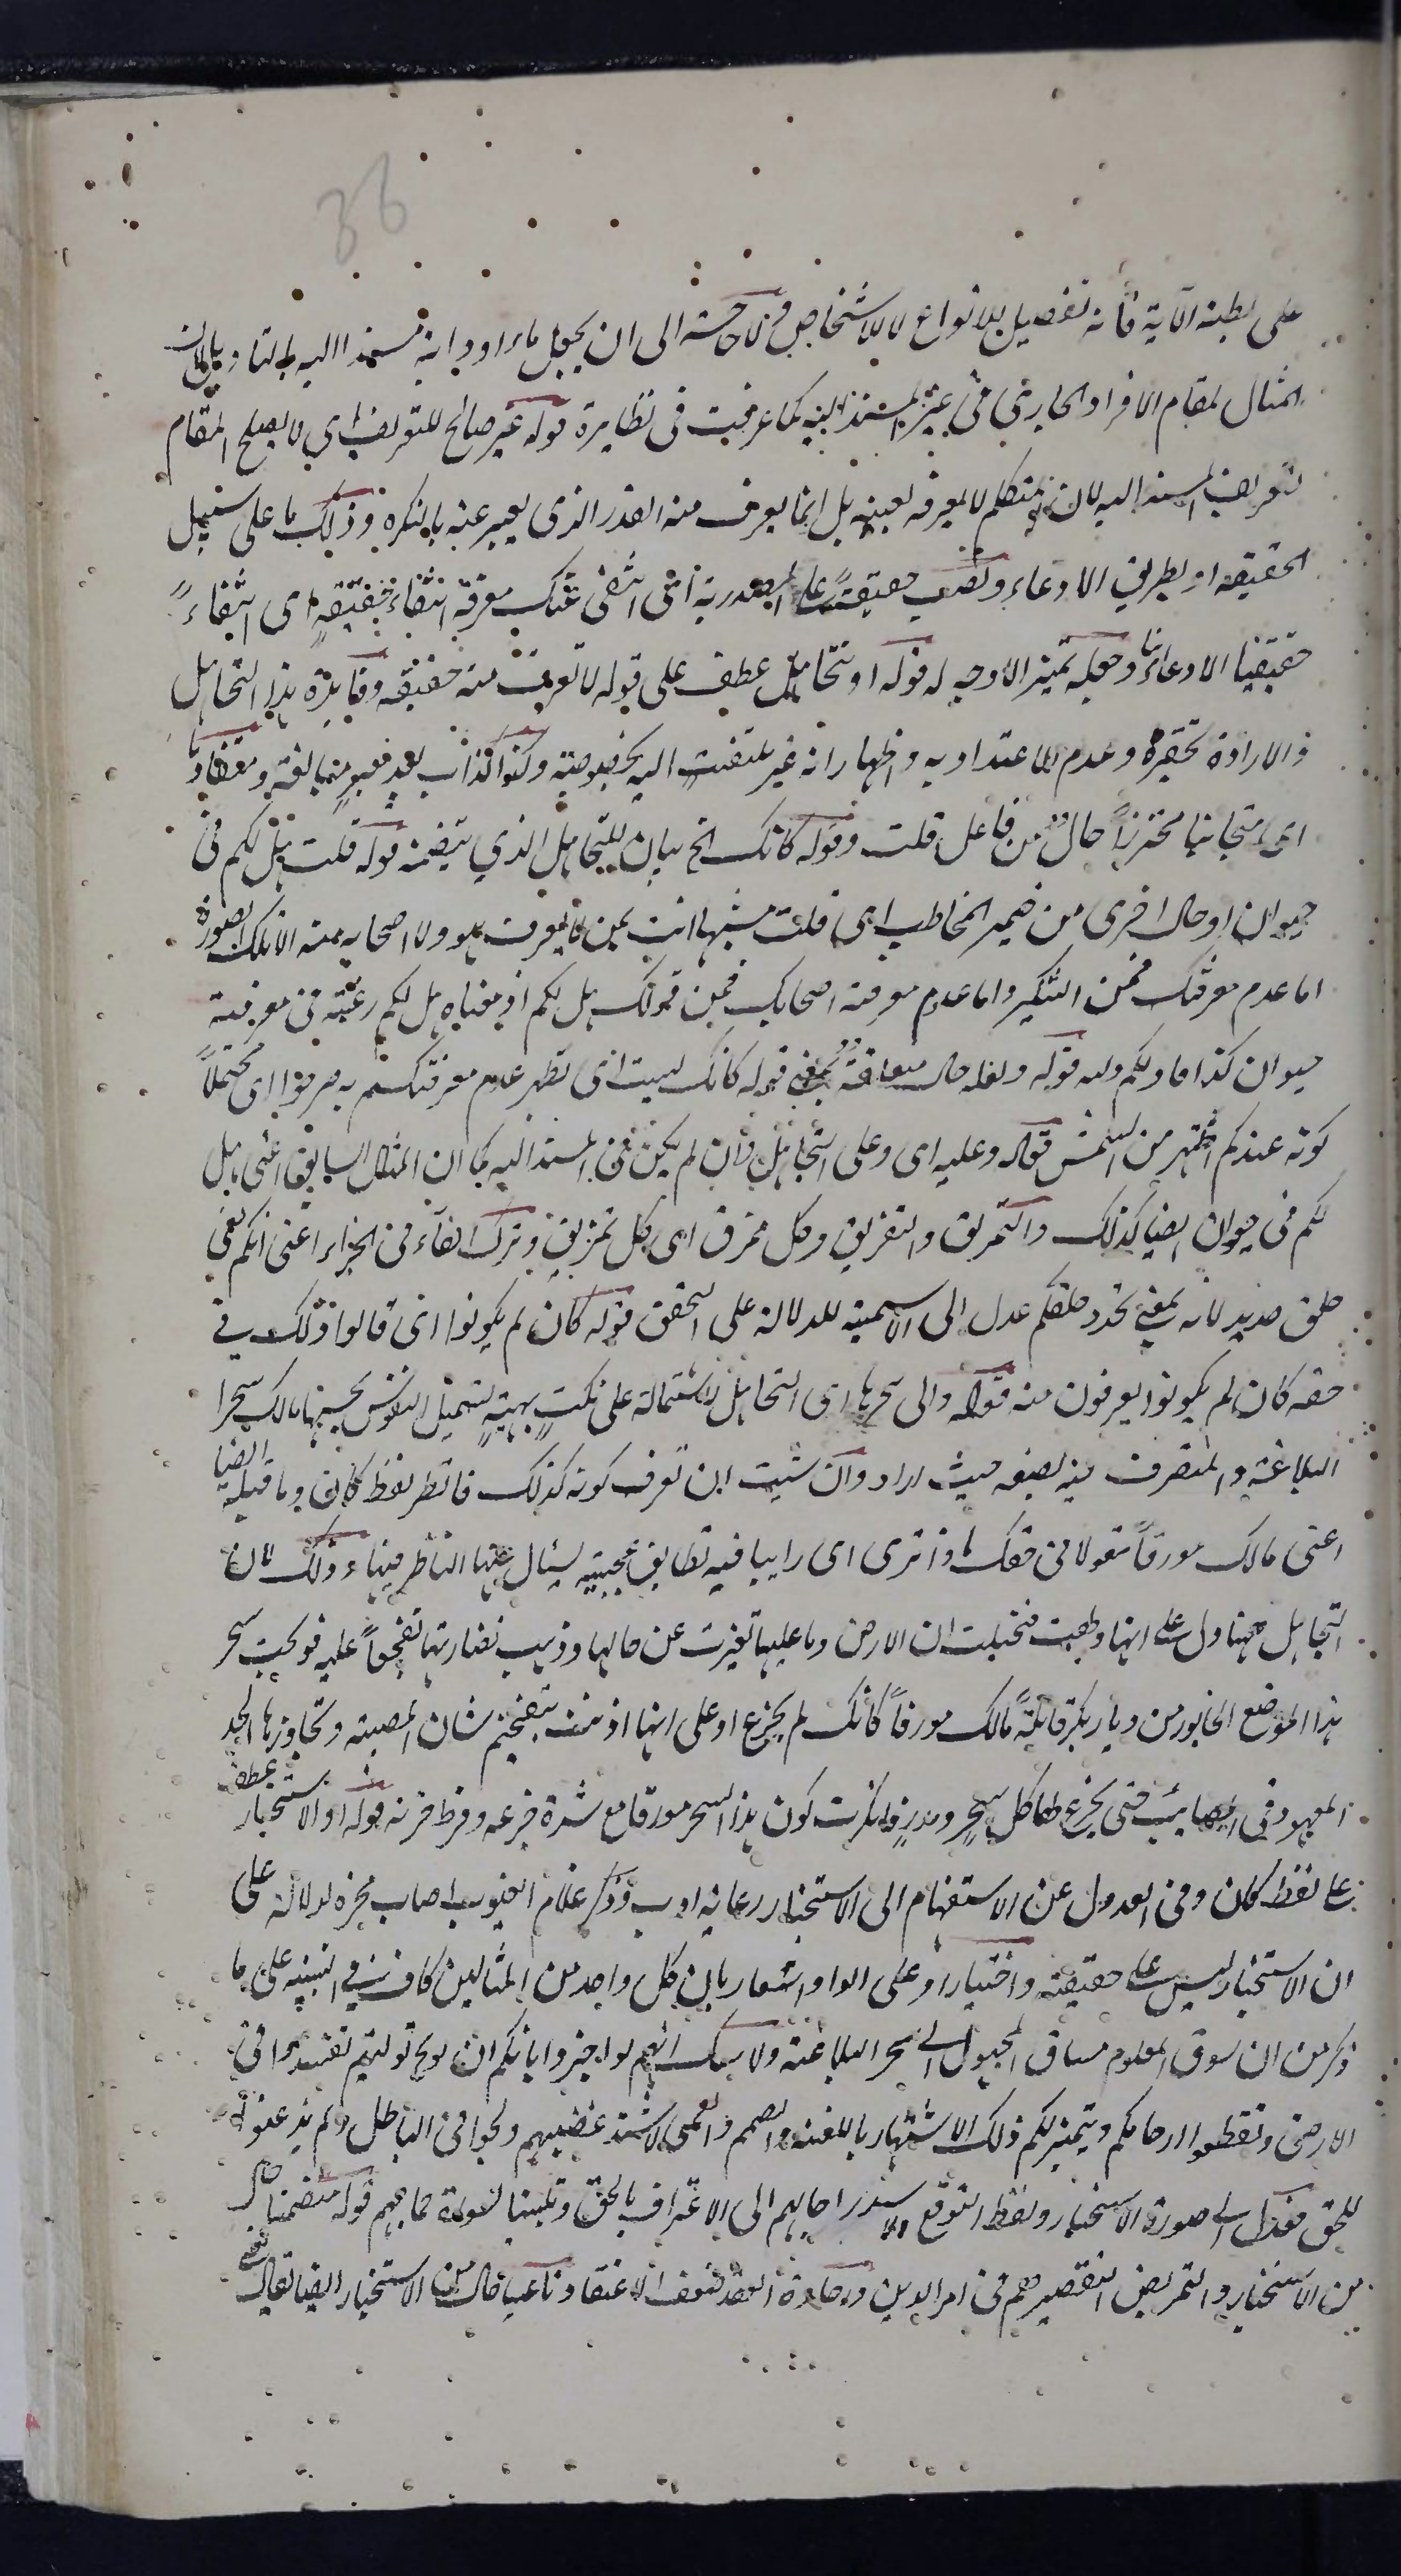 36
على بطنه الآية فانه تفصيل للانواع لا للاشخاص فلا حاجة الى ان يجعل ماء او دابة مسندا اليه بالتاويل لان
المثال لمقام الافراد الجارى فى غير المسند اليه كما عرفت فى نظايره قوله غير صالح للتعريف اى لا يصلح المقام
لتعريف المسند اليه لان المتكلم لا يعرفه بعينه بل انما يعرف منه القدر الذى يعبر عنه بالنكرة وذلك اما على سبيل
الحقيقة او بطريق الادعاء ونصب حقيقةً على المصدرية اى انتفى عنك معرفة انتفاء حقيقةٍ اى انتفاءً
حقيقيا لا ادعائيا وجعله تميزا لا وجه له قوله او تتجاهل عطف على قوله لا تعرف منه حقيقة وفايدة هذا التجاهل
والارادة تحقيره وعدم الاعتداد به واظهار انه غير ملتفت اليه بخصوصيته وكونه كذاب بعد مبالغة ومتفاديا
اى متجانبا محترزاً حال من فاعل قلت وقوله كانك الخ بيان للتجاهل الذي يتضمنه قوله قلت هل لكم فى
حيوان او حال اخرى من ضمير المخاطب اى قلت مشبها انت بمن لا يعرف هو ولا اصحابه منه الا تلك الصورة
اما عدم معرفتك فمن التنكير واما عدم معرفة اصحابك فمن قولك هل لكم اذ معناه هل لكم رغبة فى معرفة
حيوان كذا قوله ولعله حال كانك لست اى تظهر عدم معرفتكم به اى محتملاً
كونه عندكم اشهر من الشمس قوله وعليه اى وعلى التجاهل وان لم يكن فى المسند اليه كما ان المثال السابق اعنى هل
لكم فى حيوان ايضا كذلك والتمزيق والتفريق وكل ممزق اى كل تمزيق وترك الفاء فى الجزاء اعنى انكم لفى
خلق جديد لانه بمعنى تجدد خلقكم عدل الى الاسمية للدلالة على التحقق قوله كان لم يكونوا اى قالوا ذلك فى
حقه كان لم يكونوا يعرفون منه قوله والى سحرها اى التجاهل لاشتماله على نكت بهية لتميل النفوس بحسنها مالك سحرا
البلاغة والمتصرف فيه يصيغه حيث اراد وان شئت ان تعرف كونه كذلك فانظر لفظ كان وما قبله ايضا
اعنى مالك مورقاً مقولا فى حقك ماذا ترى اى رايا فيه تطابق عجيبة يسئال عنها الناظر فيها وذلك لان
التجاهل ههنا دل على انها ولهت فتخيلت ان الارض وما عليها تغيرت عن حالها وذهبت نضارتها تفجعاً عليه فوبخت شجر
هذا الموضع الخابور من ديار بكر قايلةً مالك مورقاً كانك لم تجزع او على انها اذنت بتفخيم شان المصيبة وتجاوزها الحد
المعهود فى المصايب حتى يجزع لها كل شجر ومدر وانكرت كون هذا الشجر مورقا مع شدة جزعه وفرط حزنه قوله او الاستخبار عطف
على لفظ كان وفى العدول عن الاستفهام الى الاستخبار رعاية ادب وذكر علام الغيوب اصاب محزه لدلالة على
ان الاستخبار ليس على حقيقته واختيار او على الواو اشعار بان كل واحد من المثالين كاف فى التنبيه على ما
ذكر من ان سوق المعلوم مساق المجهول الى سحر البلاغة ولا شك انهم لو اخبروا بانكم ان توليتم تفسدوا فى
الارض وتقطعوا ارحامكم ويتميز لكم ذلك الاشتهار باللعنة والصمم والعمى لاشتد غضبهم ولجوا فى الباطل ولم يذعنوا
للحق فعدل الى صورة الاستخبار ولفظ التوقع استدراجا لهم الى الاعتراف بالحق وتليينا قوله متضمنا حال
من الاستخبار والتعريض لتقصيرهم فى امر الدين ورخاوة العقد ضعف الاعتقاد ناعيا حال من الاستخبار ايضا يقال نعى